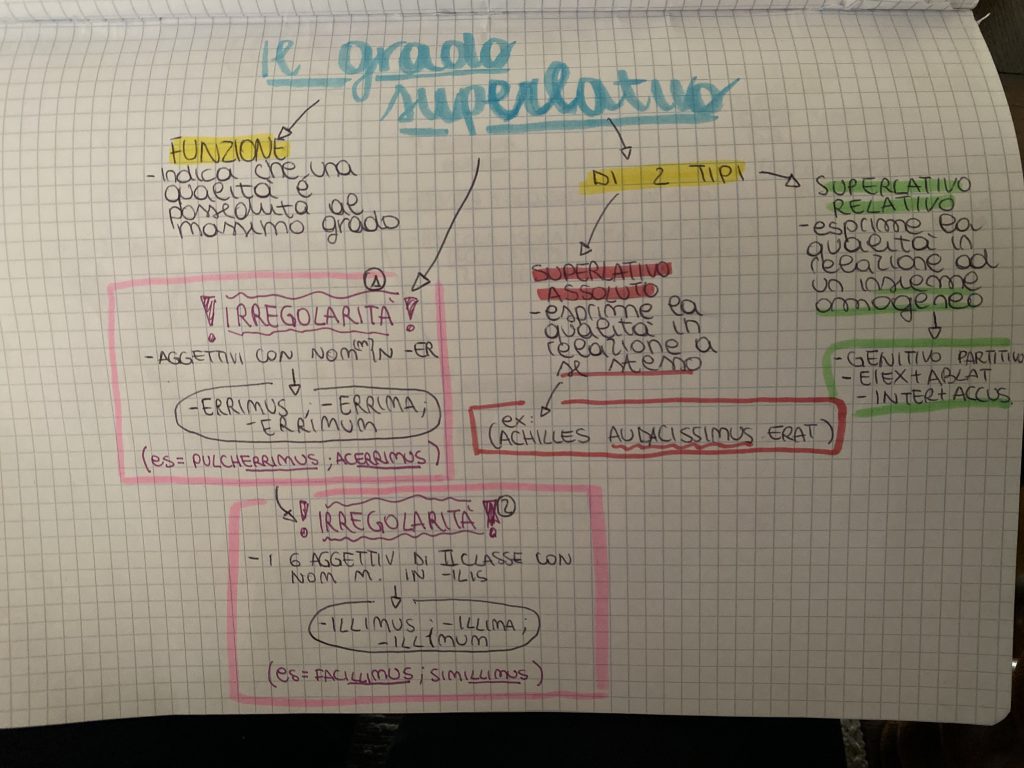 il grado
superlativo
FUNZIONE
- indica che una
qualità è
posseduta al
massimo grado
DI 2 TIPI
SUPERLATIVO
RELATIVO
- esprime la
qualità in
relazione ad
un insieme
omogeneo
- GENITIVO PARTITIVO
- E/EX + ABLAT
- INTER + ACCUS.
SUPERLATIVO
ASSOLUTO
- esprime la
qualità in
relazione a
se stesso
ex:
(ACHILLES AUDACISSIMUS ERAT)
1
! IRREGOLARITÀ !
- AGGETTIVI CON NOM (m) IN -ER
-ERRIMUS, -ERRIMA;
-ERRIMUM
(es= PULCHERRIMUS; ACERRIMUS)
! IRREGOLARITÀ ! 2
- I 6 AGGETTIV DI II CLASSE CON
NOM M. IN -ILIS
-ILLIMUS; -ILLIMA;
-ILLIMUM
(es= FACILLIMUS; SIMILLIMUS)